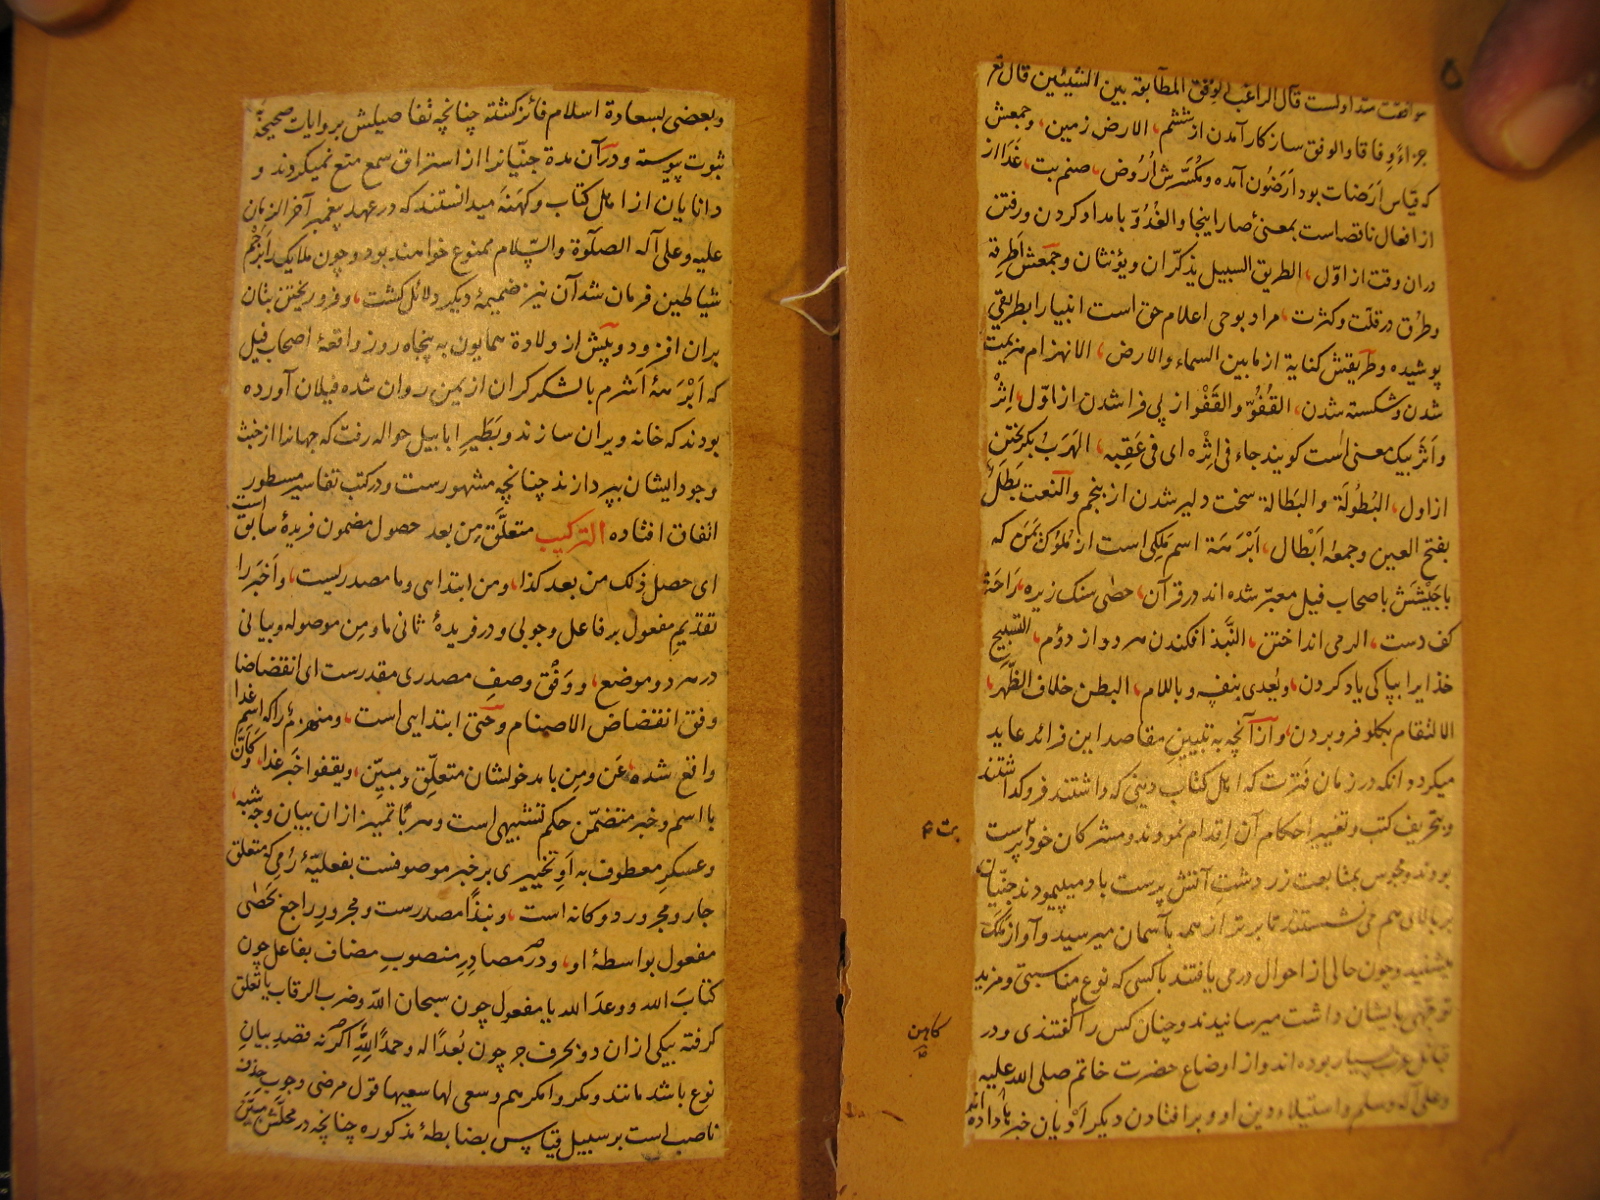 موافقت متداولست قال الراغب الوفق المطابقه بین الشیئین قال تع
جزاءً وِفاقا والوفق سازکار آمدن از ششم، الارض زمین، وجمعش
که قیاس اَرَضات بود اَرَضُون آمده ومُکسَّرش اُرُوض، صنم بت، غَدَا از
از افعال ناقصاست بمعنیٔ صار اینجا والغُدُوّ بامداد کردن ورفتن
دران وقت از اوّل، الطریق السبیل یذکّران ویؤنثان وجمعش اَطرِقه
وطُرُق در قلّت وکثرت، مراد بوحی اعلام حق است انبیا را بطریقی
پوشیده وطریقش کنایة از ما بین السماء والارض، الانهزام هزیمت
شدن وشکسته شدن، القُفُوّ والقَفْو از پی فرا شدن از اوّل، اِثْر
واَثَر بیک معنی است کویند جاء فی اِثْره ای فی عَقِبه، الهَرَبُ بکریختن
از اول، البُطُولَة والبَطالة سخت دلیر شدن از پنجم والنعت بَطَلٌ
بفتح العین وجمعهٔ اَبْطال، اَبْرَهَة اسم مَلِکی است از مُلوک یَمَن که
با جَیْشَش باصحاب فیل معبّر شده اند در قرآن، حصٰی سنک زیره، رَاحَة
کف دست، الرمی انداختن، النَّبذ افکندن هر دو از دوُم، التسبیح
خذایرا بپاکی یاد کردن، ویُعدی بنفسه وباللام، البطن خلاف الظَّهر،
الالتقام بکلو فرو بردن، واز آنچه به تبیینِ مقاصد این فرائد عاید
میکردد انکه در زمان فَترَت که اهل کتاب دینی که داشتند فروکداشتند
وبتحریف کتب وتغییر احکام آن اِقدام نمودند ومشرکان خود بت پرست
بودند ومجوس بمتابعت زردشت آتش پرست باد میپیمودند جنّیان
بر بالای هم می نشستند تا برتر از همه بآسمان میرسید وآواز ملک
میشنید وچون حالی از احوال درمی یافتند با کسی که نوع مناسبتی ومزید
توجّهی بایشان داشت میرسانیدند وچنان کس را کفتندی ودر
قبائل عرب بسیار بوده اند واز اوضاع حضرت خاتم صلی الله علیه
وعلی آله وسلم واستیلاء دین او وبرافتادن دیکر اَدْیان خبرها داده اند
بت م
کاهن
وبعضی بسعادة اسلام فائز کشته چنانچه تفاصیلش بروایات صحیحه
بثبوت پیوسته ودر آن مدة جنّیانرا از استراق سمع منع نمیکردند و
دانایان از اهل کتاب وکهَنهَ میدانستند که در عهد پیغمبر آخر الزمان
علیه وعلی آله الصلوة والسّلام ممنوع خواهند بود وچون ملایک را برَجْم
شیاطین فرمان شد آن نیز ضمیمهٔ دیکر دلائل کشت، وفرو ریختن بتان
بران افزود وپیش از ولادة همایون به پنجاه روز واقعهٔ اصحاب فیل
که اَبْرَههٔ اَشرم با لشکر کران از یمن روان شده فیلان آورده
بودند که خانه ویران سازند وبطَیرِ ابابیل حواله رفت که جهانرا از خبث
وجود ایشان بپردازند چنانچه مشهورست ودر کتب تفاسیر مسطور است
اتفاق افتاده الترکیب متعلَّقِ مِن بعد حصول مضمون فریدهٔ سابق
ای حصل ذٰلک من بعد کذا، ومن ابتداءی وما مصدریست، واَخبَر را
تقدیمِ مفعول بر فاعل وجوبی ودر فریدهٔ ثانی ما ومِن موصوله وبیانی
در هر دو موضع، ووَفْق وصفِ مصدری مقدرست ای انقضاضا
وفق انقضاض الاصنام وحتی ابتدایی است، ومنهزمٌ را که اسم غدا
واقع شده، عَن ومِن با مدخولشان متعلّق ومبیِّن، ویقفوا خَبَرِ غدا، وکاَنَّ
با اسم وخبر متضمّن حکمِ تشبیهی است وهَرَبًا تمیز از ان بیان وجهِ شبه،
وعسکرٍ معطوف به اَوِ تخییری بر خبر موصوفست بفعلیّهٔ رُمِیَ که متعلق
جار ومجرور دوکانه است، ونبذًا مصدرست ومجرورِ راجع بحَصٰی
مفعول بواسطهٔ او، ودر مصادِرِ منصوبِ مضاف بفاعل چون
کتابَ الله ووعدَ الله یا مفعول چون سبحان الله وضرب الرقاب یا تعلق
کرفته بیکی از ان دو بحرف جر چون بُعدًا له وحمدًا لِلّه اکر نه قصد بیانِ
نوع باشد مانند ومکروا مکرهم وسعی لها سعیها قول مرضی وجوب حذف
ناصب است بر سبیل قیاس بضابطهٔ مذکوره چنانچه در محلّش مبیّن